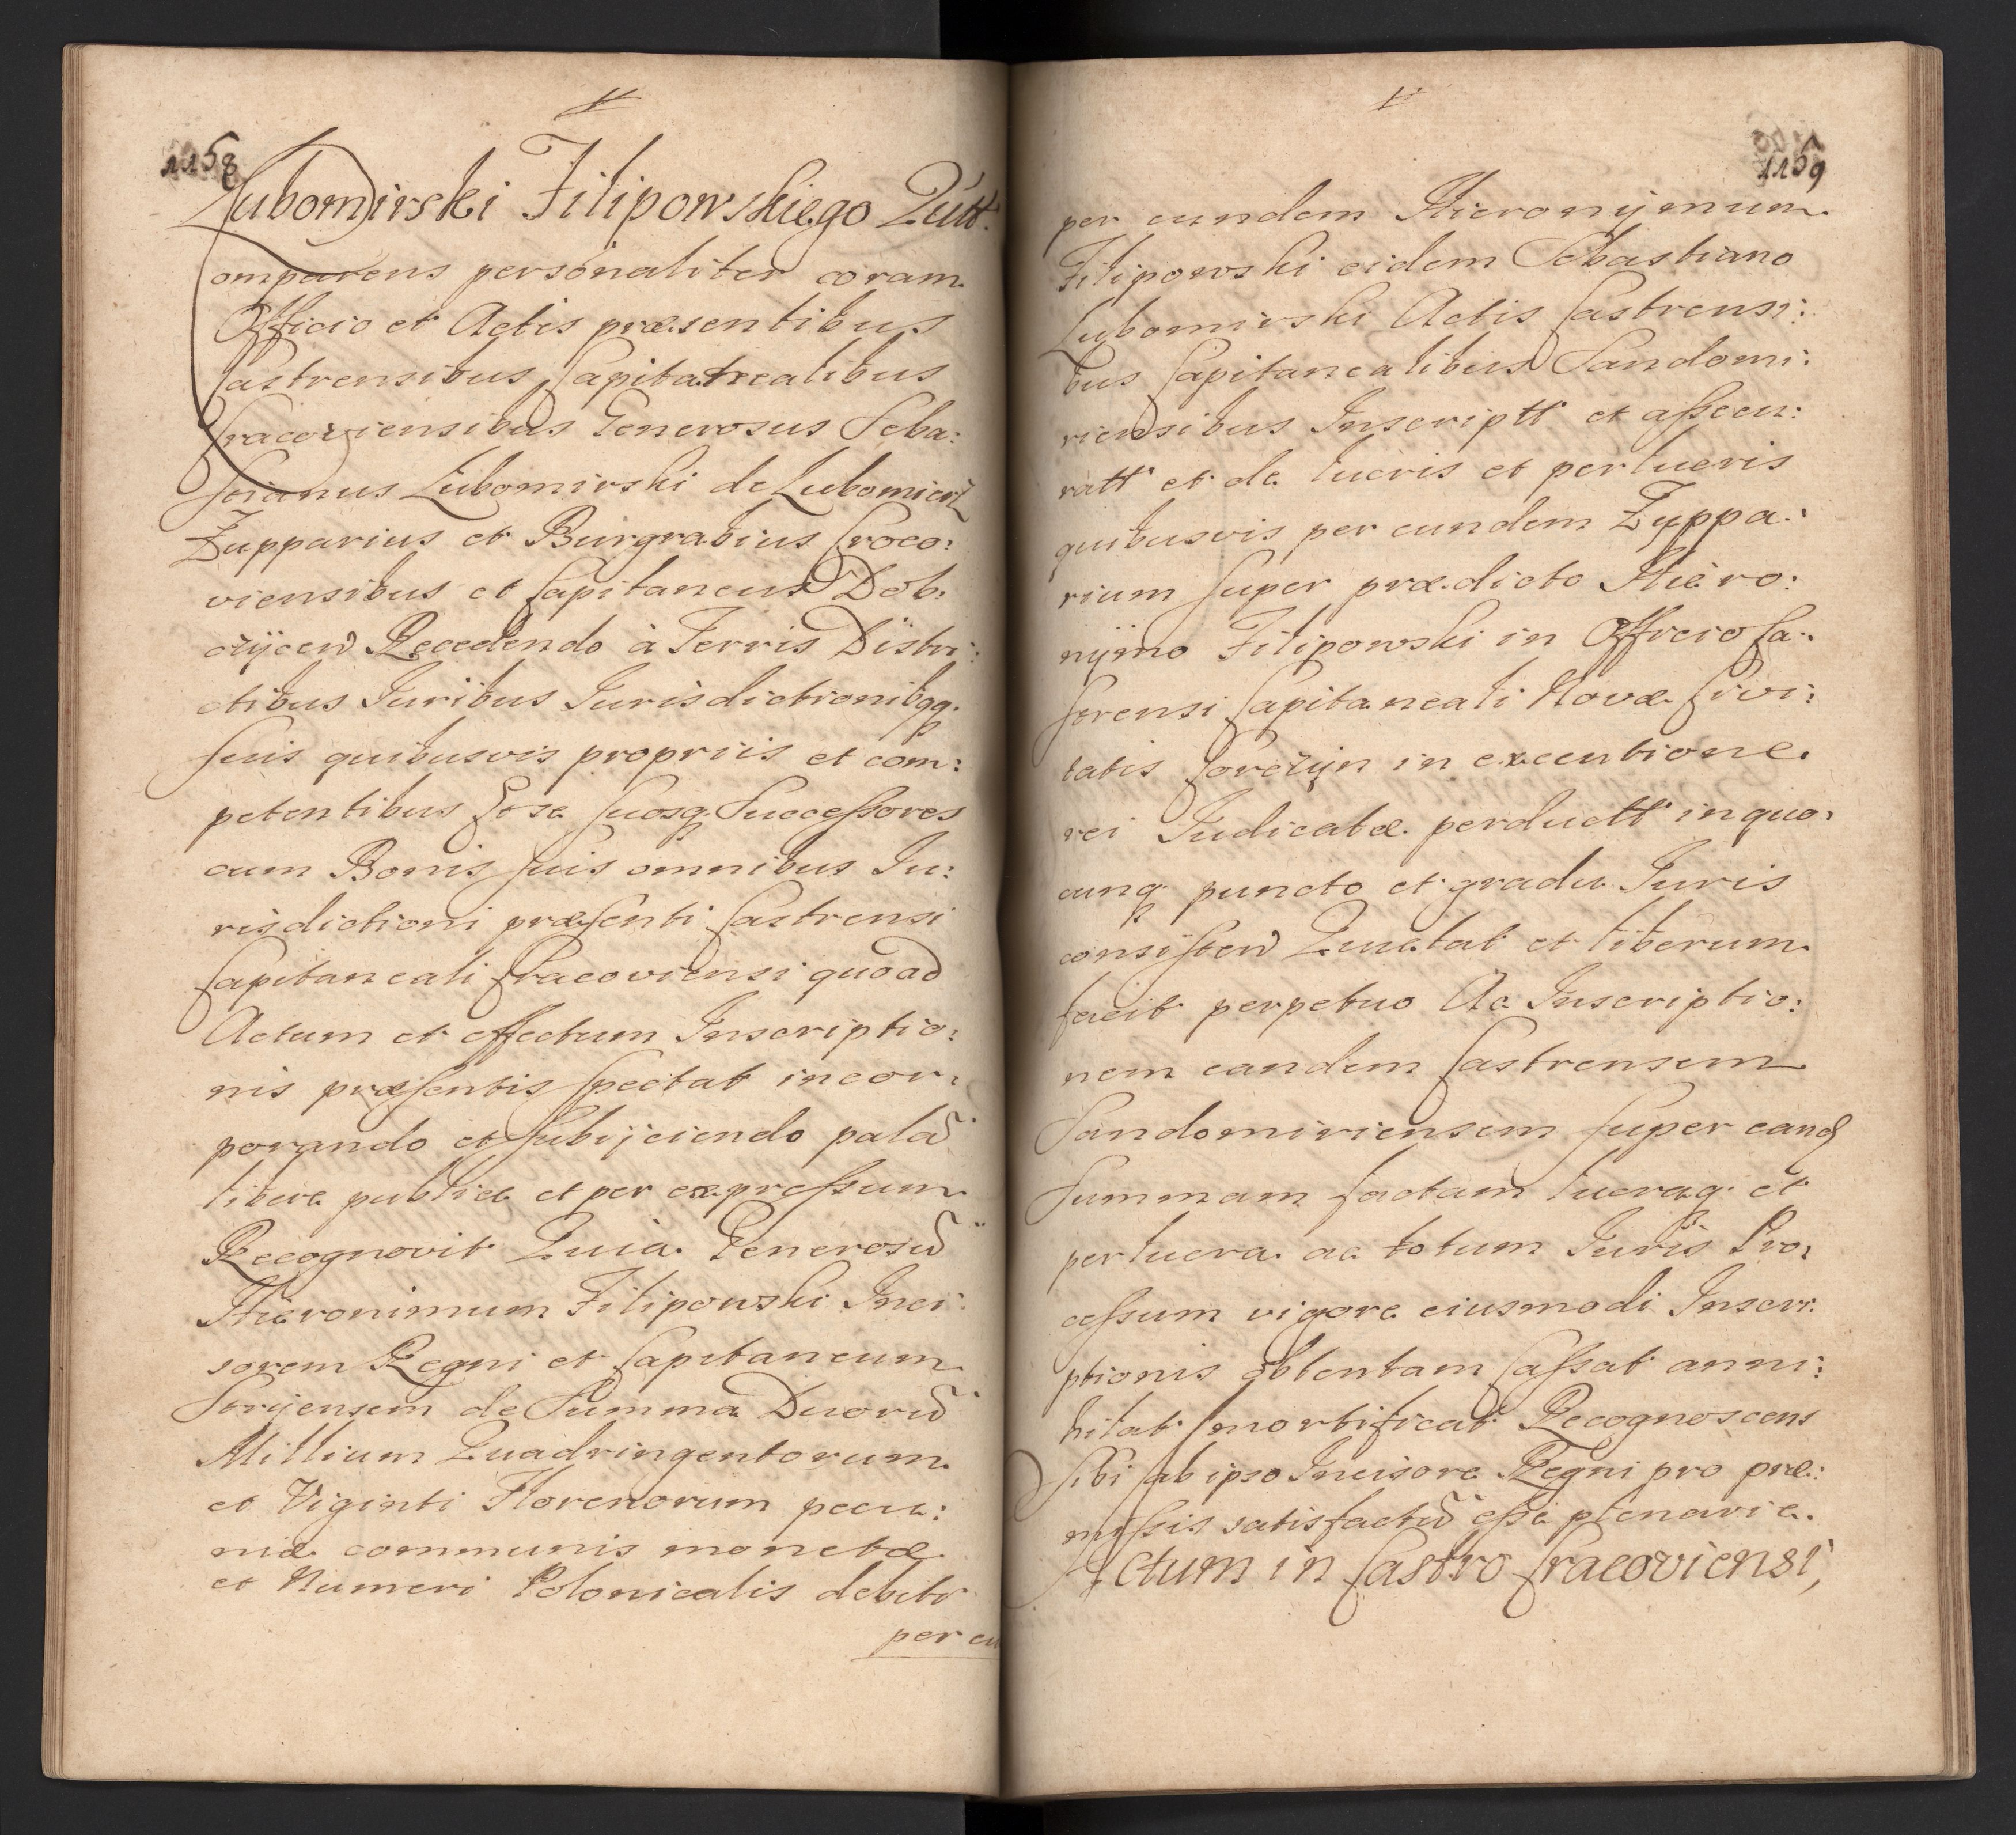 1158
Lubomirski Filipowskiego Quitt.
Comparens personaliter coram
Officio et Actis præsentibus
Castrensibus Capitanealibus
Cracoviensibus Generosus Seba:
stianus Lubomirski de Lubomierz
Zupparius et Burgrabius Craco:
viensibus et Capitaneus Dob:
czijcen Recedendo à Terris Distri:
ctibus Juribus Jurisdictionibqq.
suis quibusvis propriis et com:
petentibus Et se suosq Successores
cum Bonis suis omnibus Ju:
risdictioni præsenti Castrensi
Capitaneali Cracoviensi quoad
Actum et effectum Inscriptio:
nis præsentis spectat incor:
porando et subijciendo palā
libere publice et per expressum
Recognovit Quia Generosū
Hieronimum Filipowski Inci:
sorem Regni et Capitaneum
Strijensem de Summa Duorū
Millium Quadringentorum
et Viginti Florenorum pecu:
niæ communis monetæ
et Numeri Polonicalis debiti
per eu
1159
per eundem Hieronijmum
Filipowski eidem Sebastiano
Lubomirski Actis Castrensi:
bus Capitanealibus Sandomi:
riensibus Inscriptt et assecu:
ratt et de lucris et perlucris
quibusvis per eundem Zuppa:
rium super prædicto Hiero:
nijmo Filipowski in Officio Ca:
strensi Capitaneali Novæ Civi:
tatis Korczijn in executione
rei Judicatæ perductt in quo:
cunq puncto et gradu Juris
consisten Quietat et liberum
facit perpetuo Ac Inscriptio:
nem eandem Castrensem
Sandomiriensem super eand
Summam factam lucraq et
perlucra ac totum Juris Pro:
cessum vigore eiusmodi Inscri:
ptionis obtentam Cassat anni:
hilat mortificat Recognoscens
sibi ab ipso Incisore Regni pro præ:
missis satisfactū esse plenarie.
Actum in Castro Cracoviensi,